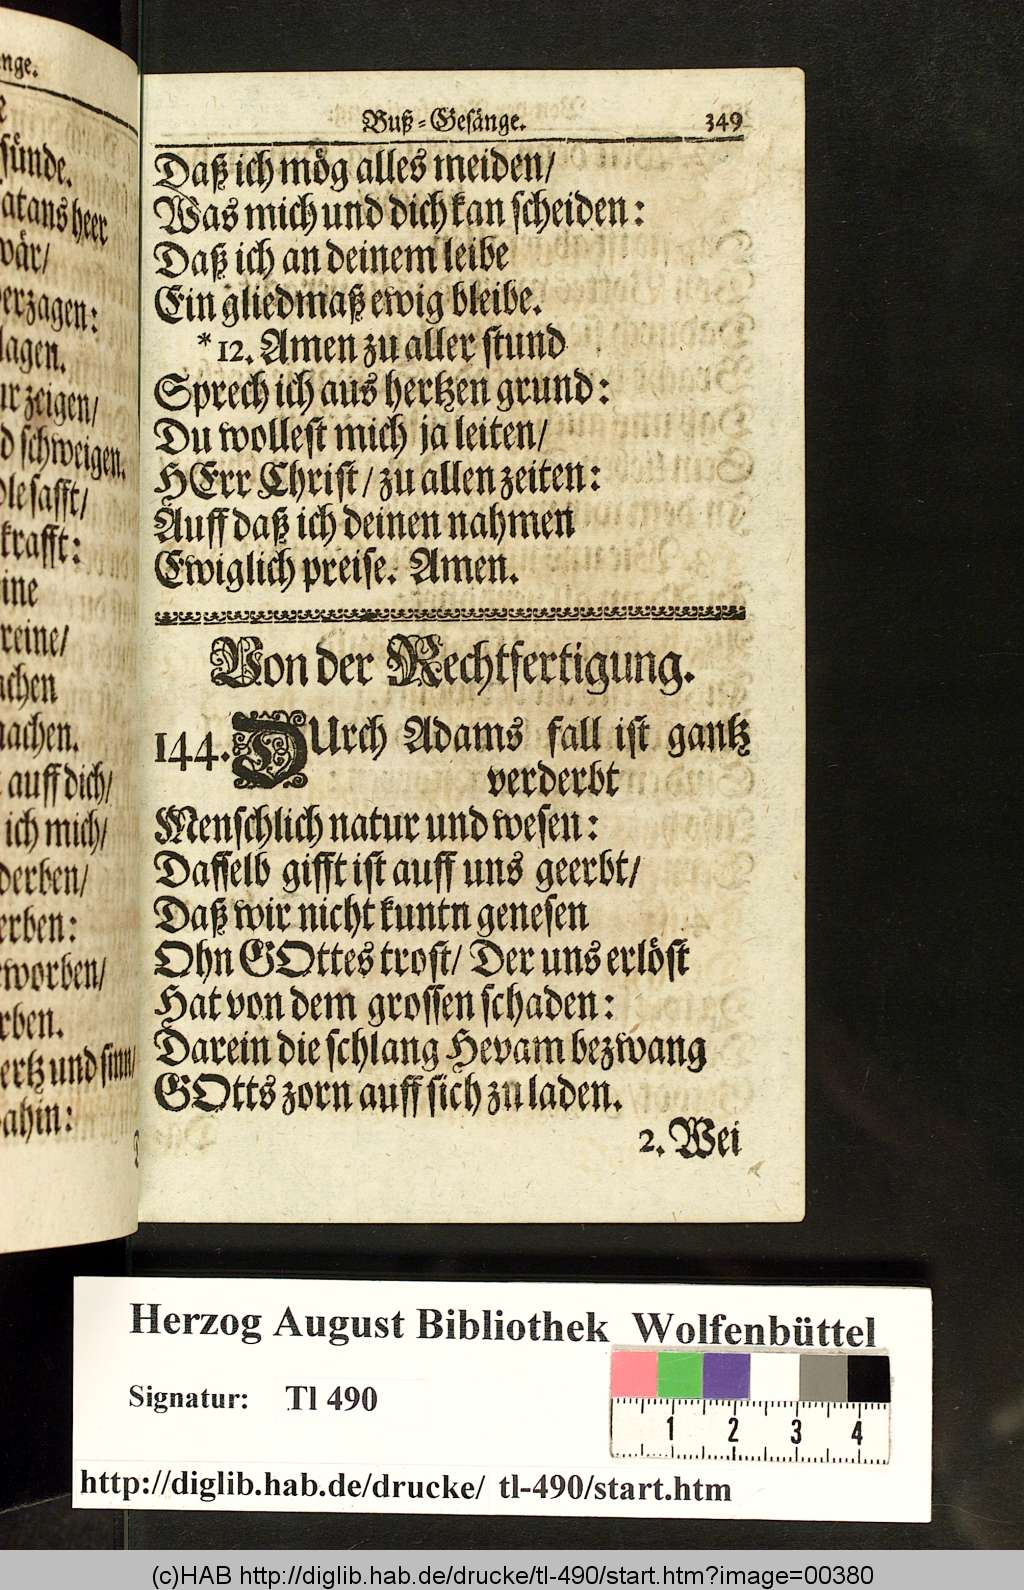 nge.
sünde.
atans heer
wär/
erzagen:
lagen.
ur zeigen/
d schweigen.
ole safft/
krafft:
ine
reine/
achen
achen.
auff dich/
ich mich/
derben/
erben:
worben/
rben.
ertz und sinn/
ahin:
Buß-Gesänge. 349
Daß ich mög alles meiden/
Was mich und dich kan scheiden:
Daß ich an deinem leibe
Ein gliedmaß ewig bleibe.
*12. Amen zu aller stund
Sprech ich aus hertzen grund:
Du wollest mich ja leiten/
HErr Christ/ zu allen zeiten:
Auff daß ich deinen nahmen
Ewiglich preise. Amen.
Von der Rechtfertigung.
144. DUrch Adams fall ist gantz
verderbt
Menschlich natur und wesen:
Dasselb gifft ist auff uns geerbt/
Daß wir nicht kuntn genesen
Ohn GOttes trost/ Der uns erlöst
Hat von dem grossen schaden:
Darein die schlang Hevam bezwang
GOtts zorn auff sich zu laden.
2. Wei
Herzog August Bibliothek Wolfenbüttel
Signatur: Tl 490
1 2 3 4
http://diglib.hab.de/drucke/ tl-490/start.htm
(c)HAB http://diglib.hab.de/drucke/tl-490/start.htm?image=00380